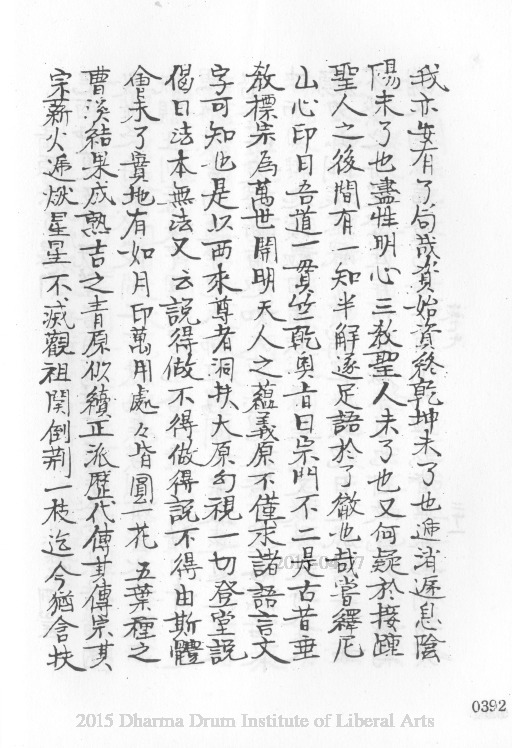 我亦安有了句哉資始資終乾坤未了也遞消遞息陰
陽未了也盡性明心三教聖人未了也又何疑於接踵
聖人之後間有一知半解遂足語於了徹也哉嘗釋尼
山心印曰吾道一貫竺乾奧旨曰宗門不二是古昔垂
教標宗為萬世開明天人之蘊義原不僅求諸語言文
字可知也是以西來尊者洞扶大原幻視一切登堂說
偈曰法本無法又云說得做不得做得說不得由斯體
會未了實地有如月印萬用處々皆圓一花五葉種之
曹溪結果成熟古之青原欲續正派歷代傳其傳宗其
宗薪火遞燃星星不滅觀祖関倒荊一枝迄今猶含扶
0392
2015 Dharma Drum Institute of Liberal Arts